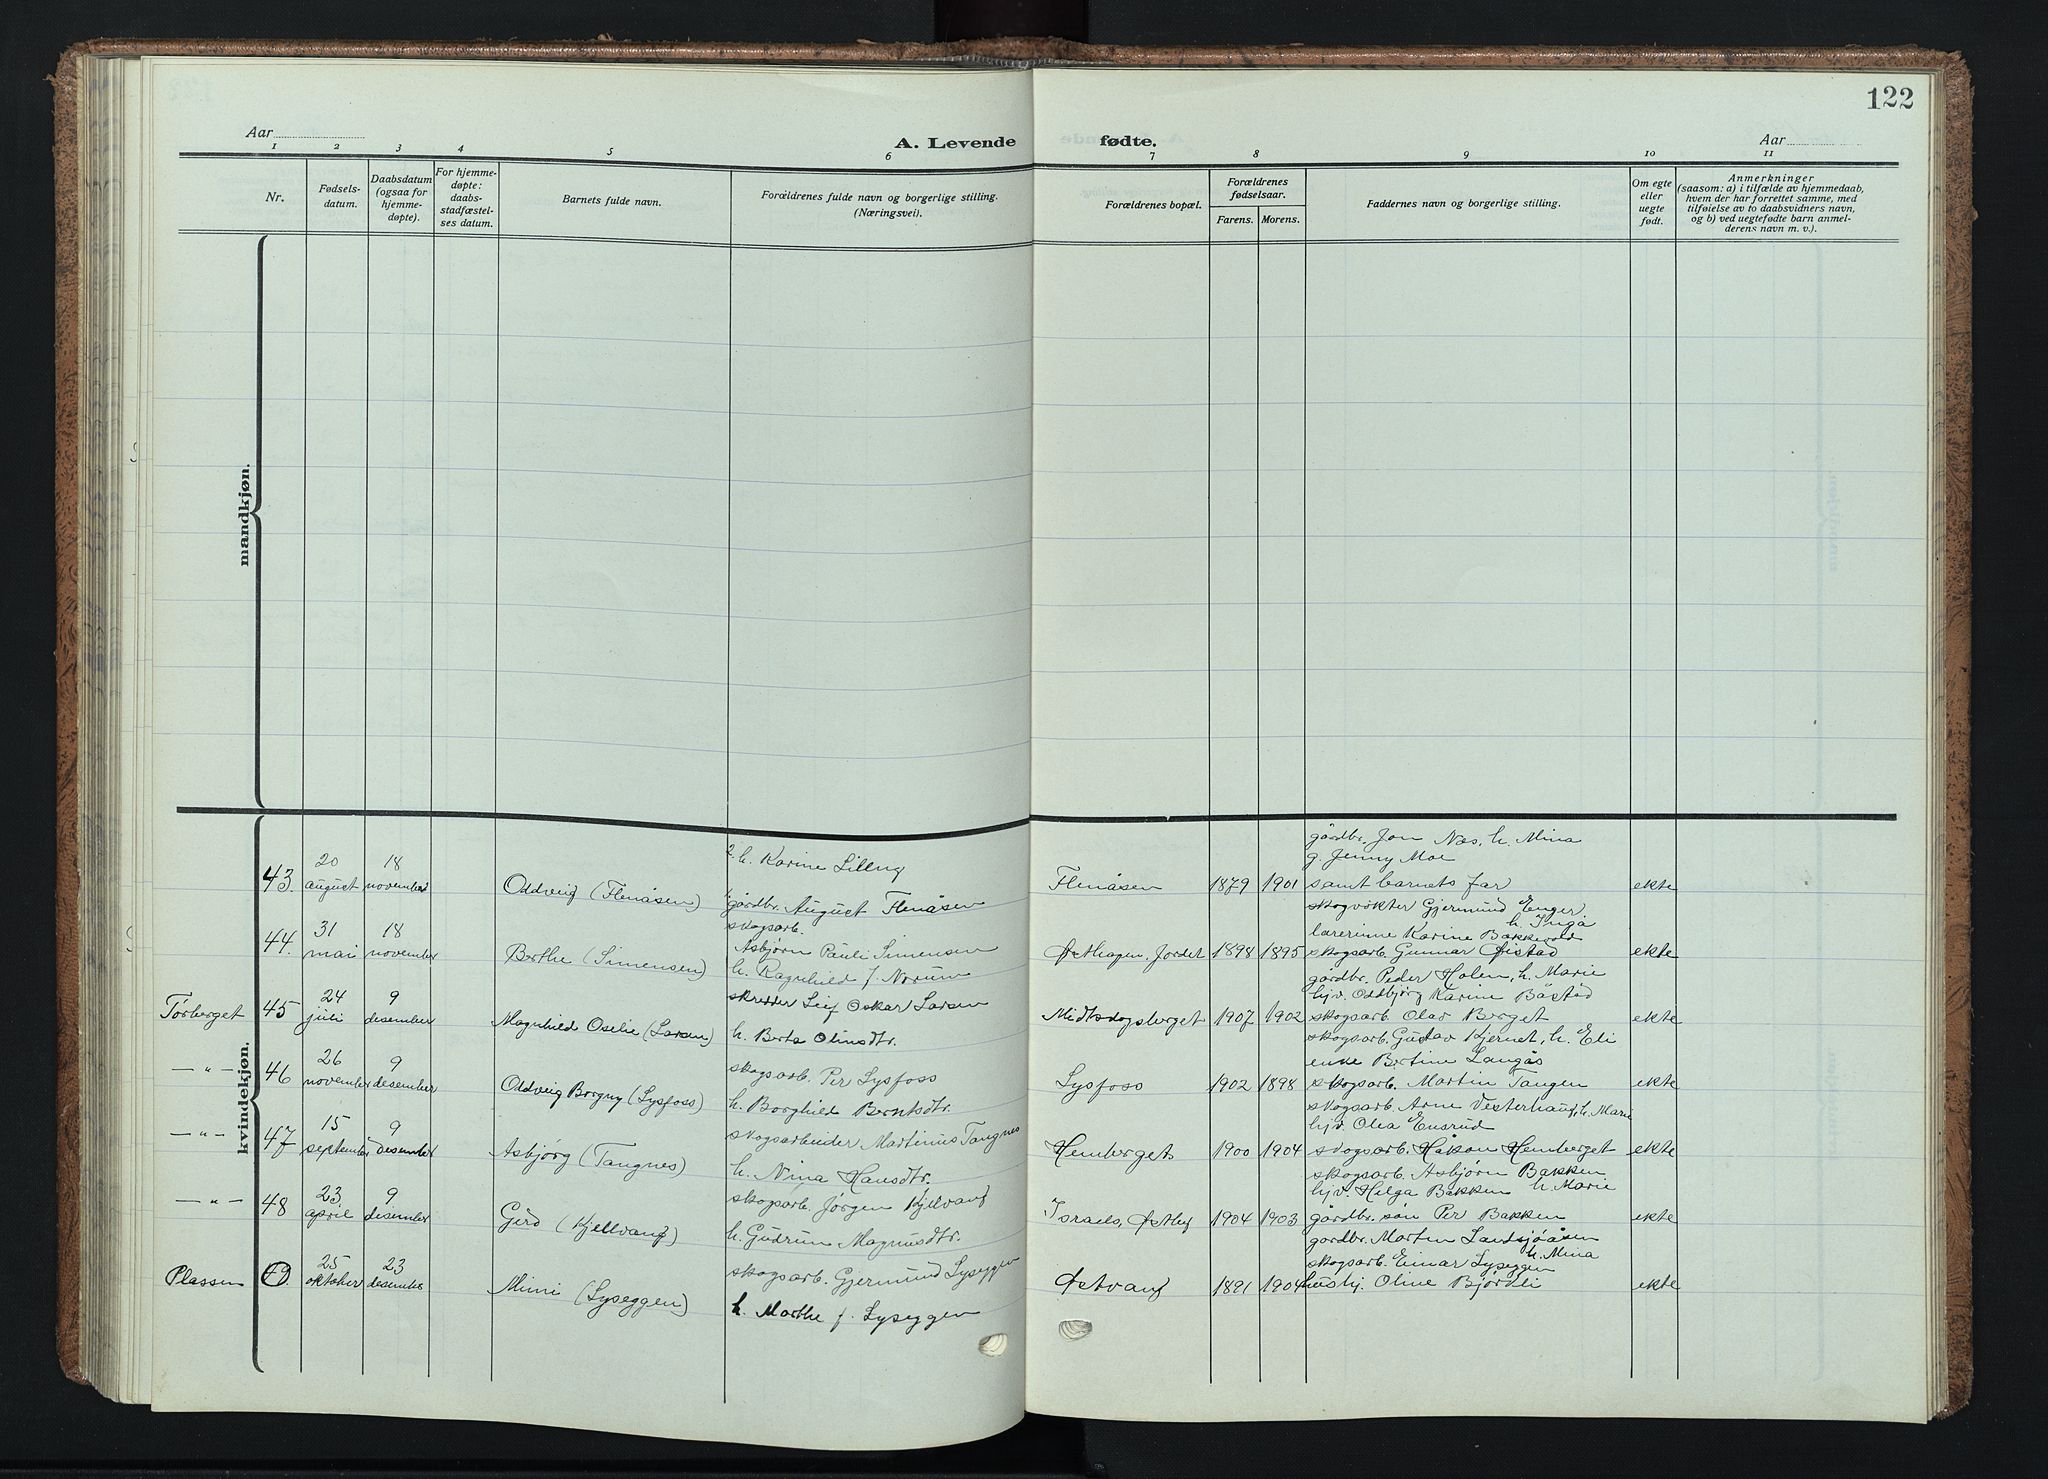 122
Aar
A. Levende fødte.
Aar
1 2 3 4 5 6 7 8 9 10 11
Nr.
Fødsels-
datum.
Daabsdatum
(ogsaa for
hjemme-
døpte).
For hjemme-
døpte:
daabs-
stadfæstel-
ses datum.
Barnets fulde navn.
Forældrenes fulde navn og borgerlige stilling.
(Næringsvei).
Forældrenes bopæl.
Forældrenes
fødselsaar.
Farens. Morens.
Faddernes navn og borgerlige stilling.
Om egte
eller
uegte
født.
Anmerkninger
(saasom: a) i tilfælde av hjemmedaab,
hvem der har forrettet samme, med
tilføielse av to daabsvidners navn,
og b) ved uegtefødte barn anmel-
derens navn m. v.).
mandkjøn.
kvindekjøn.
43
20
august
18
november
Oddveig (Flenåsen)
2. h. Karine Lilleng
1. gårdbr. August Flenåsen
Flenåsen
1879 1901
gårdbr. Jon Næs, h. Mina
g. Jenny Moe
samt barnets far
ekte
44.
31
mai
18
november
Berthe (Simensen)
skogsarb.
Asbjørn Pauli Simensen
h. Ragnhild f. Norum
Østhagen, Jordet
1898 1895
skogvokter Gjermund Enger
h. Inga
lærerinne Karine Bakkevold
skogsarb. Gunnar Øistad
ekte
Tørberget
45
24
juli
9
desember
Magnhild Oselie (Larsen)
skredder Leif Oskar Larsen
h. Berta Olinsdtr.
Midtskogsberget
1907 1902
gårdbr. Peder Holen, h. Marie
hjv. Oddbjørg Karine Båstad
skogsarb. Olav Berget
ekte
—"—
46
26
november
9
desember
Oddveig Borgny (Lysfoss)
skogsarb. Per Lysfoss
h. Borghild Berntsdtr.
Lysfoss
1902 1898
skogsarb. Gustav Kjernet, h. Eli
enke Bertine Langås
skogsarb. Martin Tangen
ekte
—"—
47
15
september
9
desember
Asbjørg (Tangnes)
skogsarbeider Martinus Tangnes
h. Nina Hansdtr.
Hemberget
1900 1904
skogsarb. Arne Vesterhaug, h. Marie
hjv. Olea Ensrud
skogsarb. Håkon Hemberget
ekte
—"—
48
23
april
9
desember
Gerd (Kjellvang)
skogsarb. Jørgen Kjelvang
h. Gudrun Magnusdtr.
Israels, Østby
1904 1903
skogsarb. Asbjørn Bakken
h. Marie
hjv. Helga Bakken
gårdbr. søn Per Bakken
ekte
Plassen
49
25
oktober
23
desember
Mimi (Lyseggen)
skogsarb. Gjermund Lyseggen
h. Marthe f. Lyseggen
Østvang
1891 1904
gårdbr. Morten Landsjøåsen
h. Mina
skogsarb. Einar Lyseggen
hushj. Oline Bjørdli
ekte